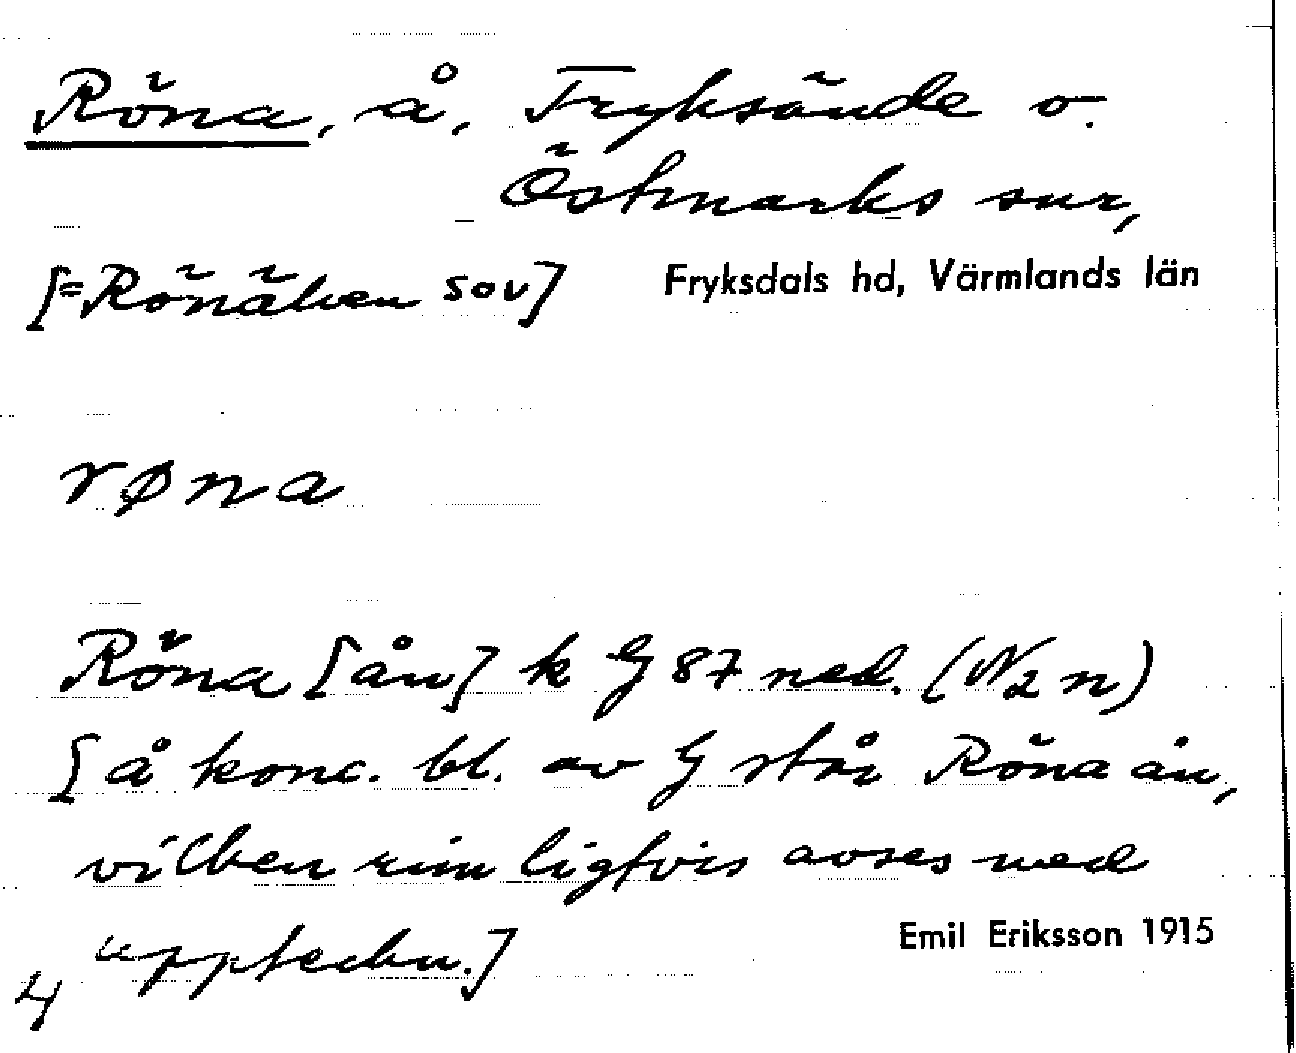 Röna, å, Fryksände o.
Östmarks snr,
[=Rönälven SOV] Fryksdals hd, Värmlands län
røna
Röna [ån] k G 87 ned. (N2n)
[å konc. bl. av G står Röna ån,
vilken rimligtvis avses med
uppteckn.]
Emil Eriksson 1915
4